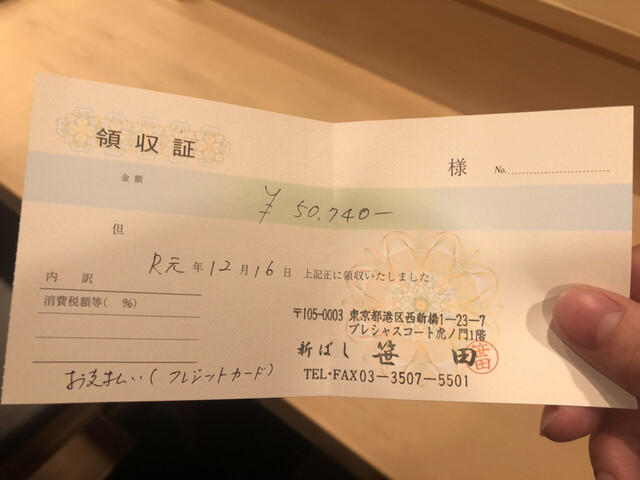 領収証
様 No.
金額
¥50,740-
但
R元年12月16日 上記正に領収いたしました
内訳
消費税額等( %)
〒105-0003 東京都港区西新橋1-23-7
プレシャスコート虎ノ門1階
新ばし 笹田
笹田
TEL・FAX03-3507-5501
お支払い(クレジットカード)